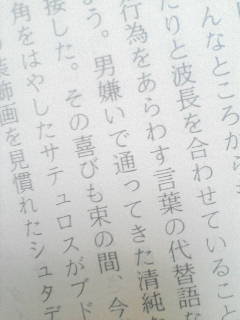 んなところから
たりと波長を合わせていること
行為をあらわす言葉の代替語な
う。男嫌いで通ってきた清純
接した。その喜びも束の間、今
角をはやしたサテュロスがブド
装飾画を見慣れたシュタデ